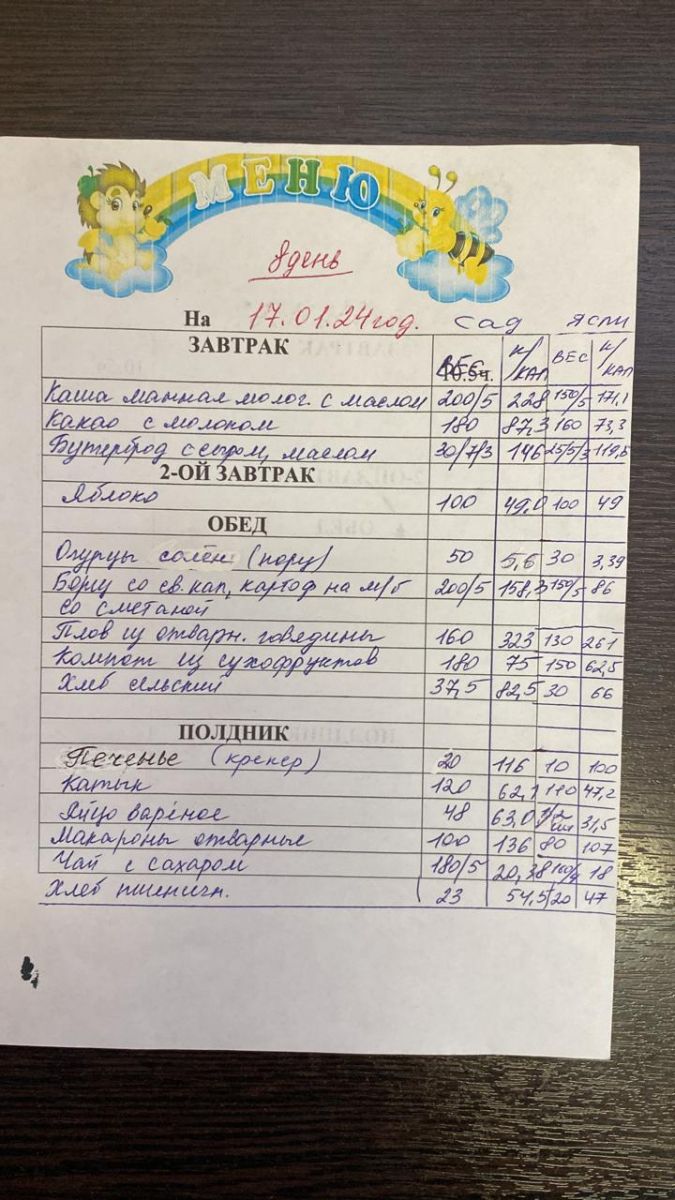 МЕНЮ
8 день
На 17.01.24 год. сад ясли
ЗАВТРАК ВЕС К/КАЛ ВЕС К/КАЛ
Каша манная молоч. с маслом 200/5 228 150/5 171,1
Какао с молоком 180 87,3 160 73,3
Бутерброд с сыром, маслом 30/7/3 146 25/5/3 119,5
2-ОЙ ЗАВТРАК
Яблоко 100 49,0 100 49
ОБЕД
Огурцы солён (пору) 50 5,6 30 3,39
Борщ со св. кап, картоф на м/б 200/5 158,3 150/5 86
со сметаной
Плов из отварн. говядины 160 323 130 261
Компот из сухофруктов 180 75 150 62,5
Хлеб сельский 37,5 82,5 30 66
ПОЛДНИК
Печенье (крекер) 20 116 10 100
Катык 120 62,1 110 47,2
Яйцо варёное 48 63,0 1/2 шт 31,5
Макароны отварные 100 136 80 107
Чай с сахаром 180/5 20,38 18
Хлеб пшеничн. 23 54,5 20 47